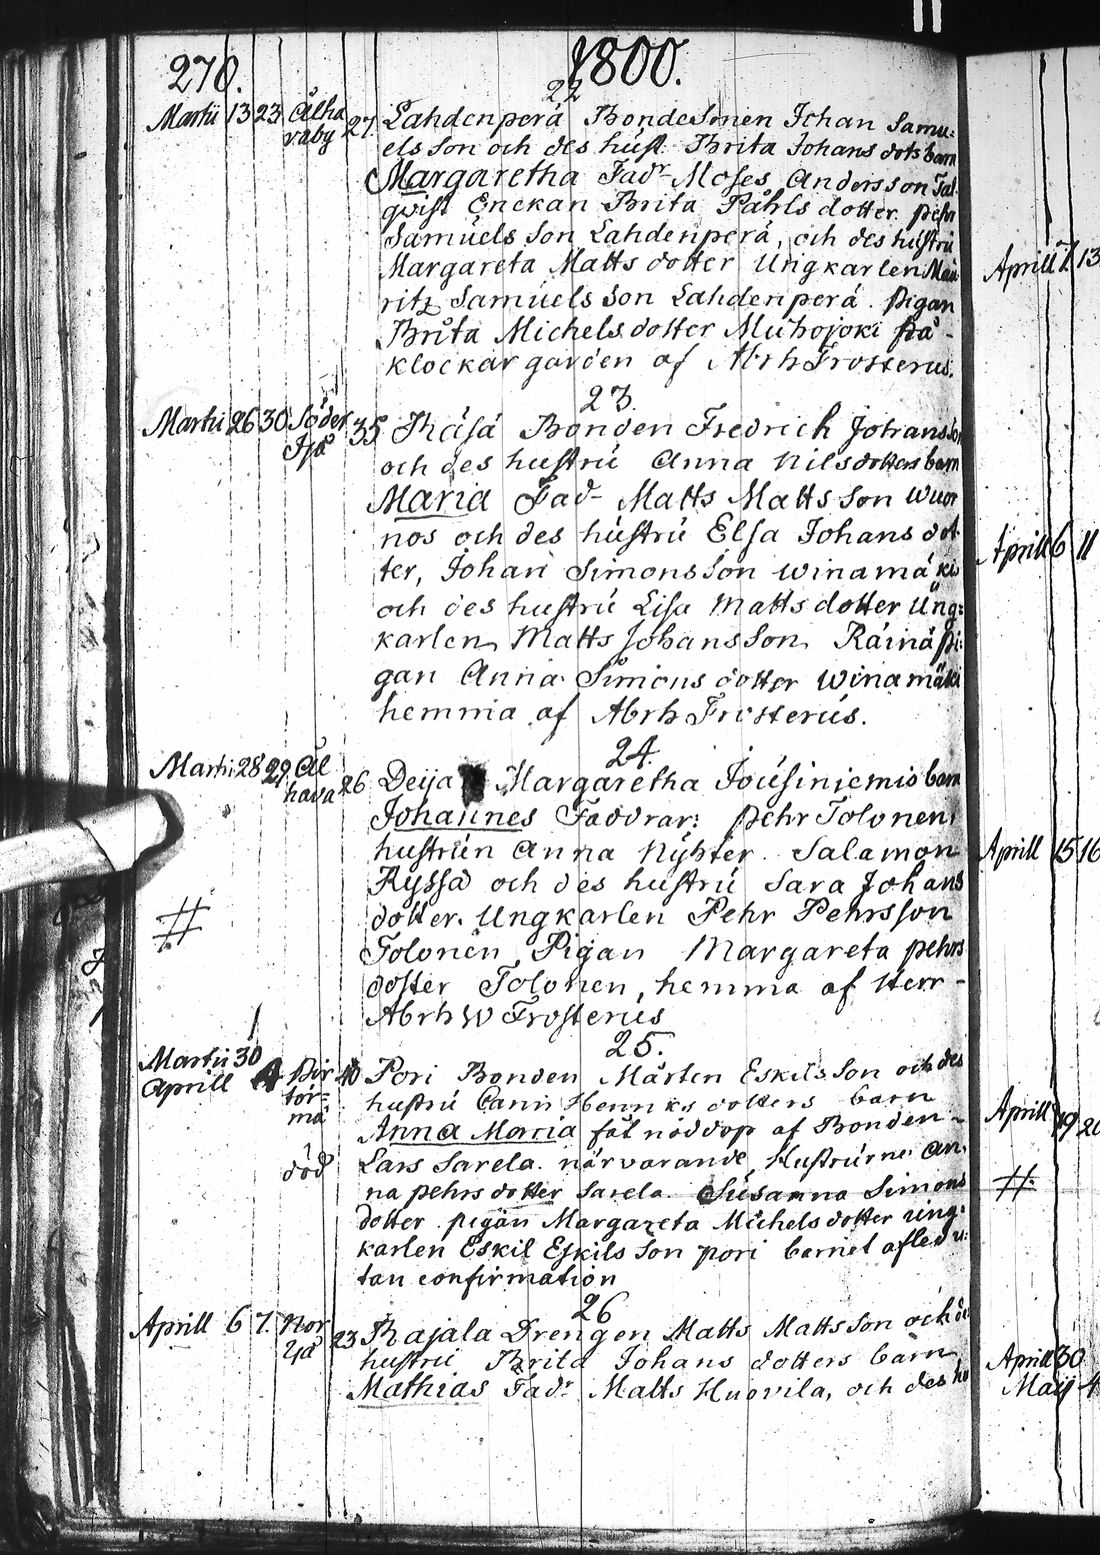 270. 1800.
22
Martii 13 23 Ålha 27. Lahdenperä Bondesonen Johan Samu=
raby els Son och des hust. Brita Johans dots barn
Margaretha Fadr Moses Andersson Tal
qvist Enckan Brita Påhls dotter. pehr
Samuels Son Lahdenperä, och des hustru
Margareta Matts dotter Ungkarlen Mau
ritz Samuels Son Lahdenperä. pigan
Brita Michels dotter Muhojoki på -
klockar gården af Abrh Frosterus.
23.
Martii 26 30 Söder 35 Räisä Bonden Fredrich Johans Son
Ijå och des hustru Anna Nils dotters barn
Maria Fad- Matts Matts Son Wuor
nos och des hustru Elsa Johans dot
ter, Johan Simons Son Winamäki
och des hustru Lisa Matts dotter Ung=
karlen Matts Johans Son Rainä pi=
gan Anna Simons dotter Winamäki
hemma af Abrh Frosterus.
24.
Martii 28 29 Ål 26 Deija Margaretha Jousiniemis barn
hava Johannes Faddrar: pehr Tolonen,
hustrun Anna Nyhter. Salamon
Ryssä och des hustru Sara Johans
# dotter. Ungkarlen Pehr Pehrsson
Tolonen, Pigan Margareta pehrs
dotter Tolonen, hemma af Herr -
Abrh W Frosterus
25.
Martii 30
Aprill 4 Bir 40 Pori Bonden Mårten Eskils Son och des
tör= hustru Carin Henriks dotters barn
mä Anna Maria fåt nöddop af Bonden -
död Lars Sarela. närvarande, Hustrurne An,
na pehrs dotter Sarela. Susanna Simons
dotter. pigan Margareta Michels dotter ung=
karlen Eskil Eskils Son pori barnet afled u=
tan confirmation
26
Aprill 6 7. Nor 23 Rajala Drengen Matts Matts Son och des
Ijå hustru Brita Johans dotters barn
Mathias Fadr Matts Huovila, och des hu
Aprill 7 13
Aprill 6 11
Aprill 15 16
Aprill 19 20
#
Aprill 30
Maij 4